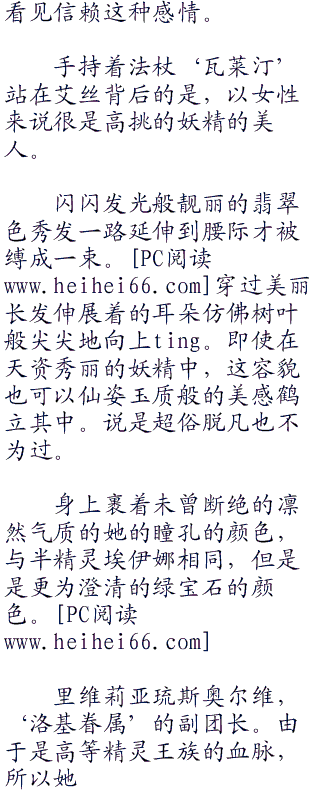 看见信赖这种感情。
手持着法杖‘瓦莱汀’
站在艾丝背后的是，以女性
来说很是高挑的妖精的美
人。
闪闪发光般靓丽的翡翠
色秀发一路延伸到腰际才被
缚成一束。[PC阅读
www.heihei66.com]穿过美丽
长发伸展着的耳朵仿佛树叶
般尖尖地向上ting。即使在
天资秀丽的妖精中，这容貌
也可以仙姿玉质般的美感鹤
立其中。说是超俗脱凡也不
为过。
身上裹着未曾断绝的凛
然气质的她的瞳孔的颜色，
与半精灵埃伊娜相同，但是
是更为澄清的绿宝石的颜
色。[PC阅读
www.heihei66.com]
里维莉亚琉斯奥尔维，
‘洛基眷属’的副团长。由
于是高等精灵王族的血脉，
所以她